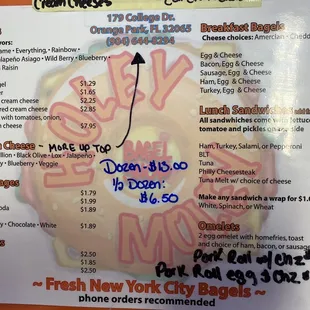 Cream Cheeses
179 College Dr.
Orange Park, FL 32065
(904) 644-0294
ame • Everything • Rainbow •
alapeño Asiago • Wild Berry • Blueberry •
Raisin
$1.29
$1.65
cream cheese $2.25
cream cheese $2.85
with tomatoes, onion,
$7.95
Cheese ~ MORE UP TOP
illion • Black Olive • Lox • Jalapeño •
Blueberry • Veggie
ages
$1.79
$1.99
$1.89
Chocolate • White $1.89
$2.50
$1.85
$2.50
HOLEY
BAGEL
MOLEY
Dozen - $13.00
1/2 Dozen:
$6.50
Breakfast Bagels
Cheese choices: American, Chedd
Egg & Cheese
Bacon, Egg & Cheese
Sausage, Egg & Cheese
Ham, Egg & Cheese
Turkey, Egg & Cheese
Lunch Sandwiches
All sandwiches come with lettuce
tomatoe and pickles on any side
Ham, Turkey, Salami, or Pepperoni
BLT
Tuna
Philly Cheesesteak
Tuna Melt w/ choice of cheese
Make any sandwich a wrap for $1.0
White, Spinach, or Wheat
Omelets
2 egg omelet with homefries, toast
and choice of ham, bacon, or sausage
Pork Roll w/ chz $
Pork Roll egg & Chz
~ Fresh New York City Bagels ~
phone orders recommended